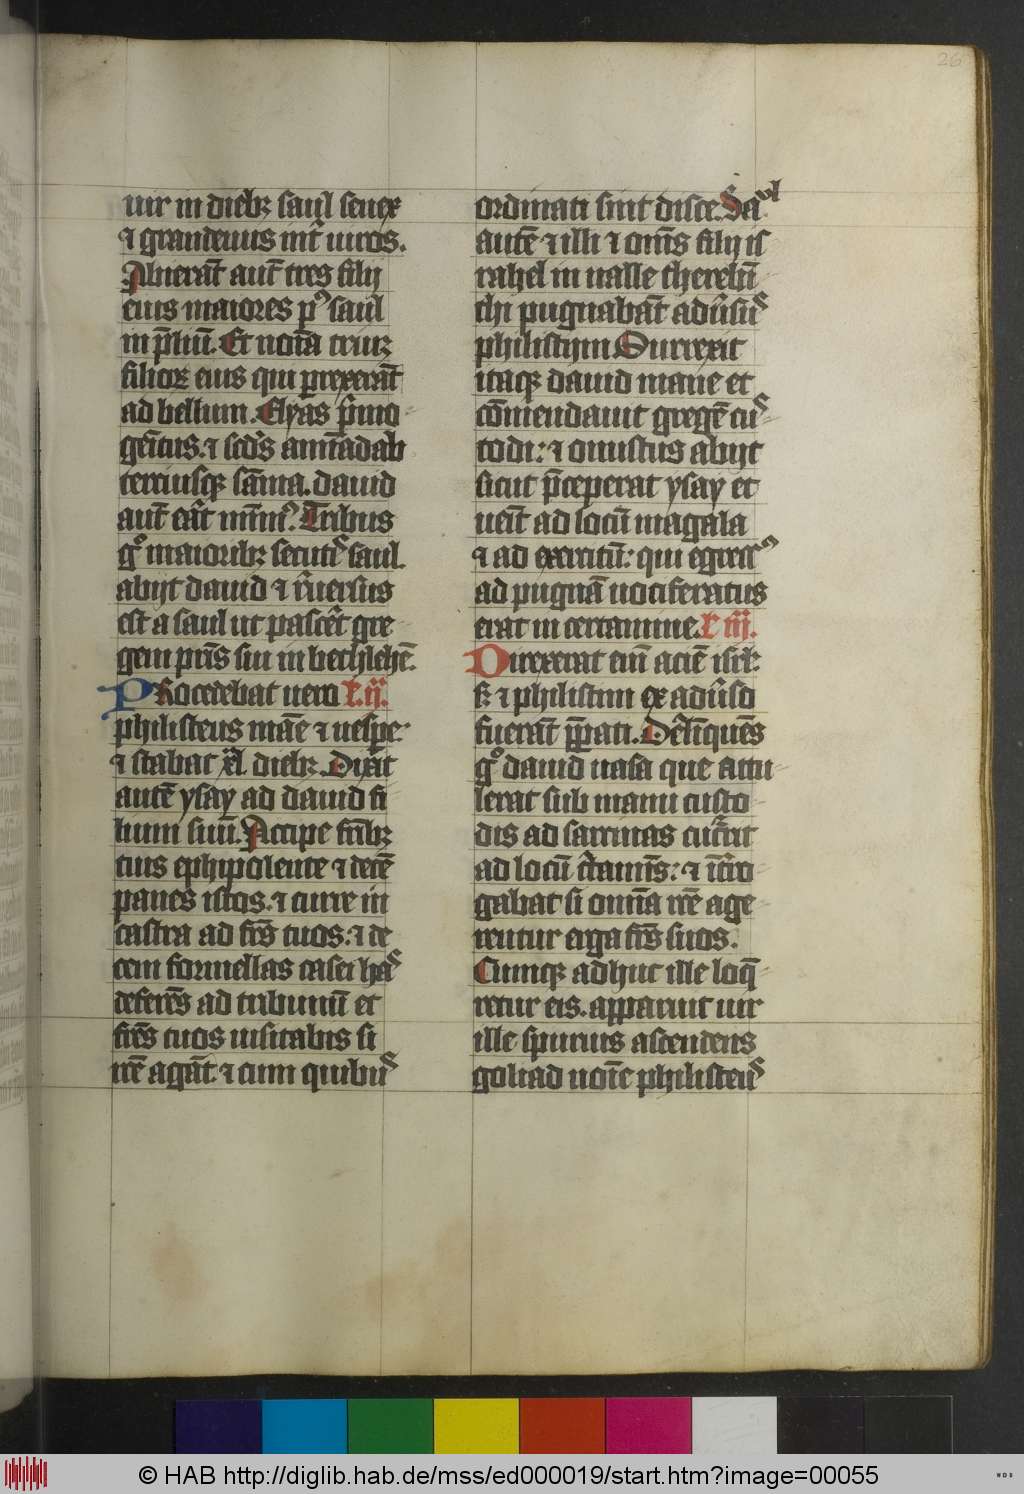 26
uir in dieb⁊ saul senex
⁊ grandeuus int̄ uiros.
Abierāt aut̄ tres filij
eius maiores pꝰ saul
in p̄liū. Et noīa triuꝝ
filioꝝ eius qui prexerāt
ad bellum. Elyas p̄mo
genitus. ⁊ scds̄ aminadab
terciusqꝫ sāma. dauid
aut̄ erāt mīmꝰ. Tribus
gͦ maiorib⁊ secutis̄ saul.
abijt dauid ⁊ r̄uersus
est a saul ut pascēt gre
gem pr̄is sui in bethlehē.
Procedebat uero R. ij.
philisteus māe ⁊ uespe
⁊ stabat xl. dieb⁊. Dixit
autē ysay ad dauid fi
lium suū. Accipe fr̄ib⁊
tuis ephi polente ⁊ decē
panes istos. ⁊ curre in
castra ad fr̄es tuos. ⁊ de
cem formellas casei has
deferēs ad tribunū et
fr̄es tuos uisitabis si
rc̄e agāt ⁊ cum quibus
ordinati sint disce. Saul
autē ⁊ illi ⁊ om̄s filij is
rahel in ualle therebin̄
thi pugnabāt adūsus
philistijm Surrexit
itaqꝫ dauid mane et
cōmendauit gregē cus
todi: ⁊ onustus abijt
sicut p̄ceperat ysay et
uēit ad locū magala
⁊ ad exercitū: qui egress
ad pugnā uociferatus
erat in certamine. R iij.
Direxerat eni aciē isrl:
s; ⁊ philistim ex adūso
fuerāt p̄pati. Derelīquēs
gͦ dauid uasa que attu
lerat sub manu custo
dis ad sarcinas cucr̄rit
ad locū c̄taminis: ⁊ ītr̄ro
gabat si omīa rc̄e age
rentur erga fr̄es suos.
Cumqꝫ adhuc ille loq̄
retur eis. apparuit uir
ille spurius ascendens
goliad noīe philisteus
© HAB http://diglib.hab.de/mss/ed000019/start.htm?image=00055